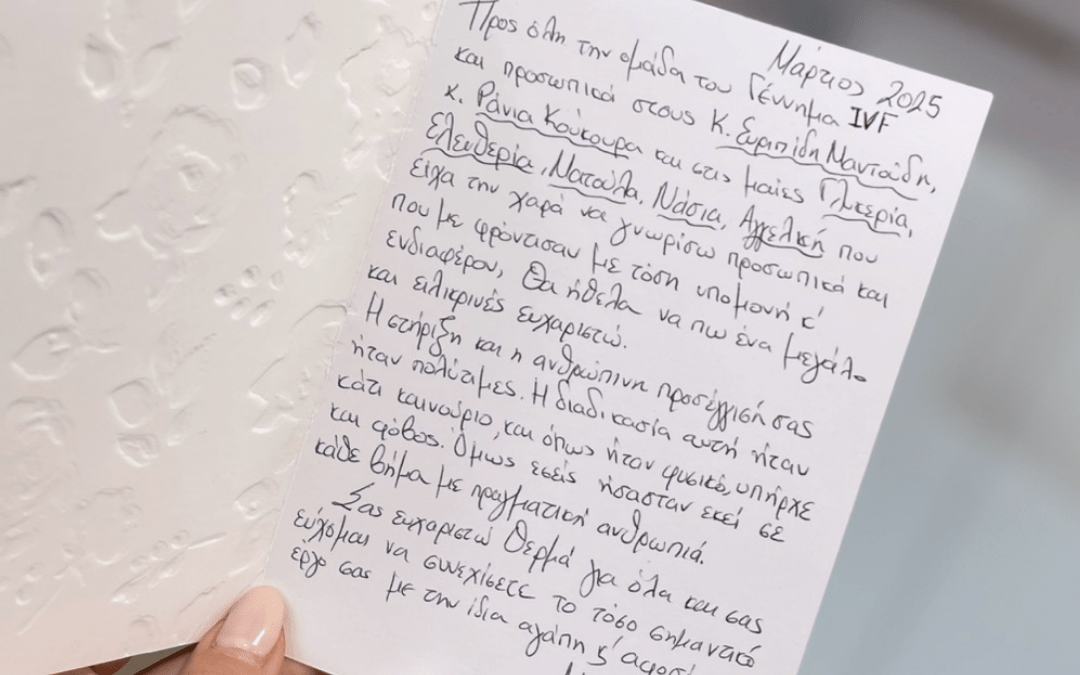 Μάρτιος 2025
Προς όλη την ομάδα του Γέννημα IVF
και προσωπικά στους κ. Ευριπίδη Μαντούδη,
κ. Ράνια Κούκουρα και στις μαίες Γλυκερία,
Ελευθερία, Ματούλα, Νάσια, Αγγελική που
είχα την χαρά να γνωρίσω προσωπικά και
που με φρόντισαν με τόση υπομονή κ'
ενδιαφέρον, Θα ήθελα να πω ένα μεγάλο
και ειλικρινές ευχαριστώ.
Η στήριξη και η ανθρώπινη προσέγγισή σας
ήταν πολύτιμες. Η διαδικασία αυτή ήταν
κάτι καινούριο, και όπως ήταν φυσικό, υπήρχε
και φόβος. Όμως εσείς ήσασταν εκεί σε
κάθε βήμα με πραγματική ανθρωπιά.
Σας ευχαριστώ θερμά για όλα και σας
εύχομαι να συνεχίσετε το τόσο σημαντικό
έργο σας με την ίδια αγάπη κ'